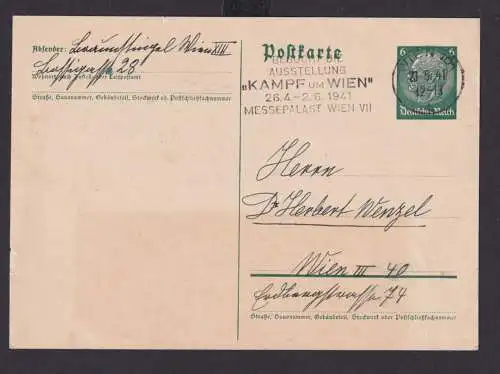 Absender: Wien XIII
23
Wohnort, auch Zustell- oder Leitpostamt
Straße, Hausnummer, Gebäudeteil, Stockwerk od. Postschließfachnummer
Postkarte
BESUCHT DIE
AUSSTELLUNG
„KAMPF UM WIEN"
26.4.-2.6.1941
MESSEPALAST WIEN VII
WIEN
41
12-13
6 6
Deutsches Reich
Herrn
Dr Herbert Wenzel
Wien III 40
Erdbergstrasse 74
Straße, Hausnummer, Gebäudeteil, Stockwerk oder Postschließfachnummer